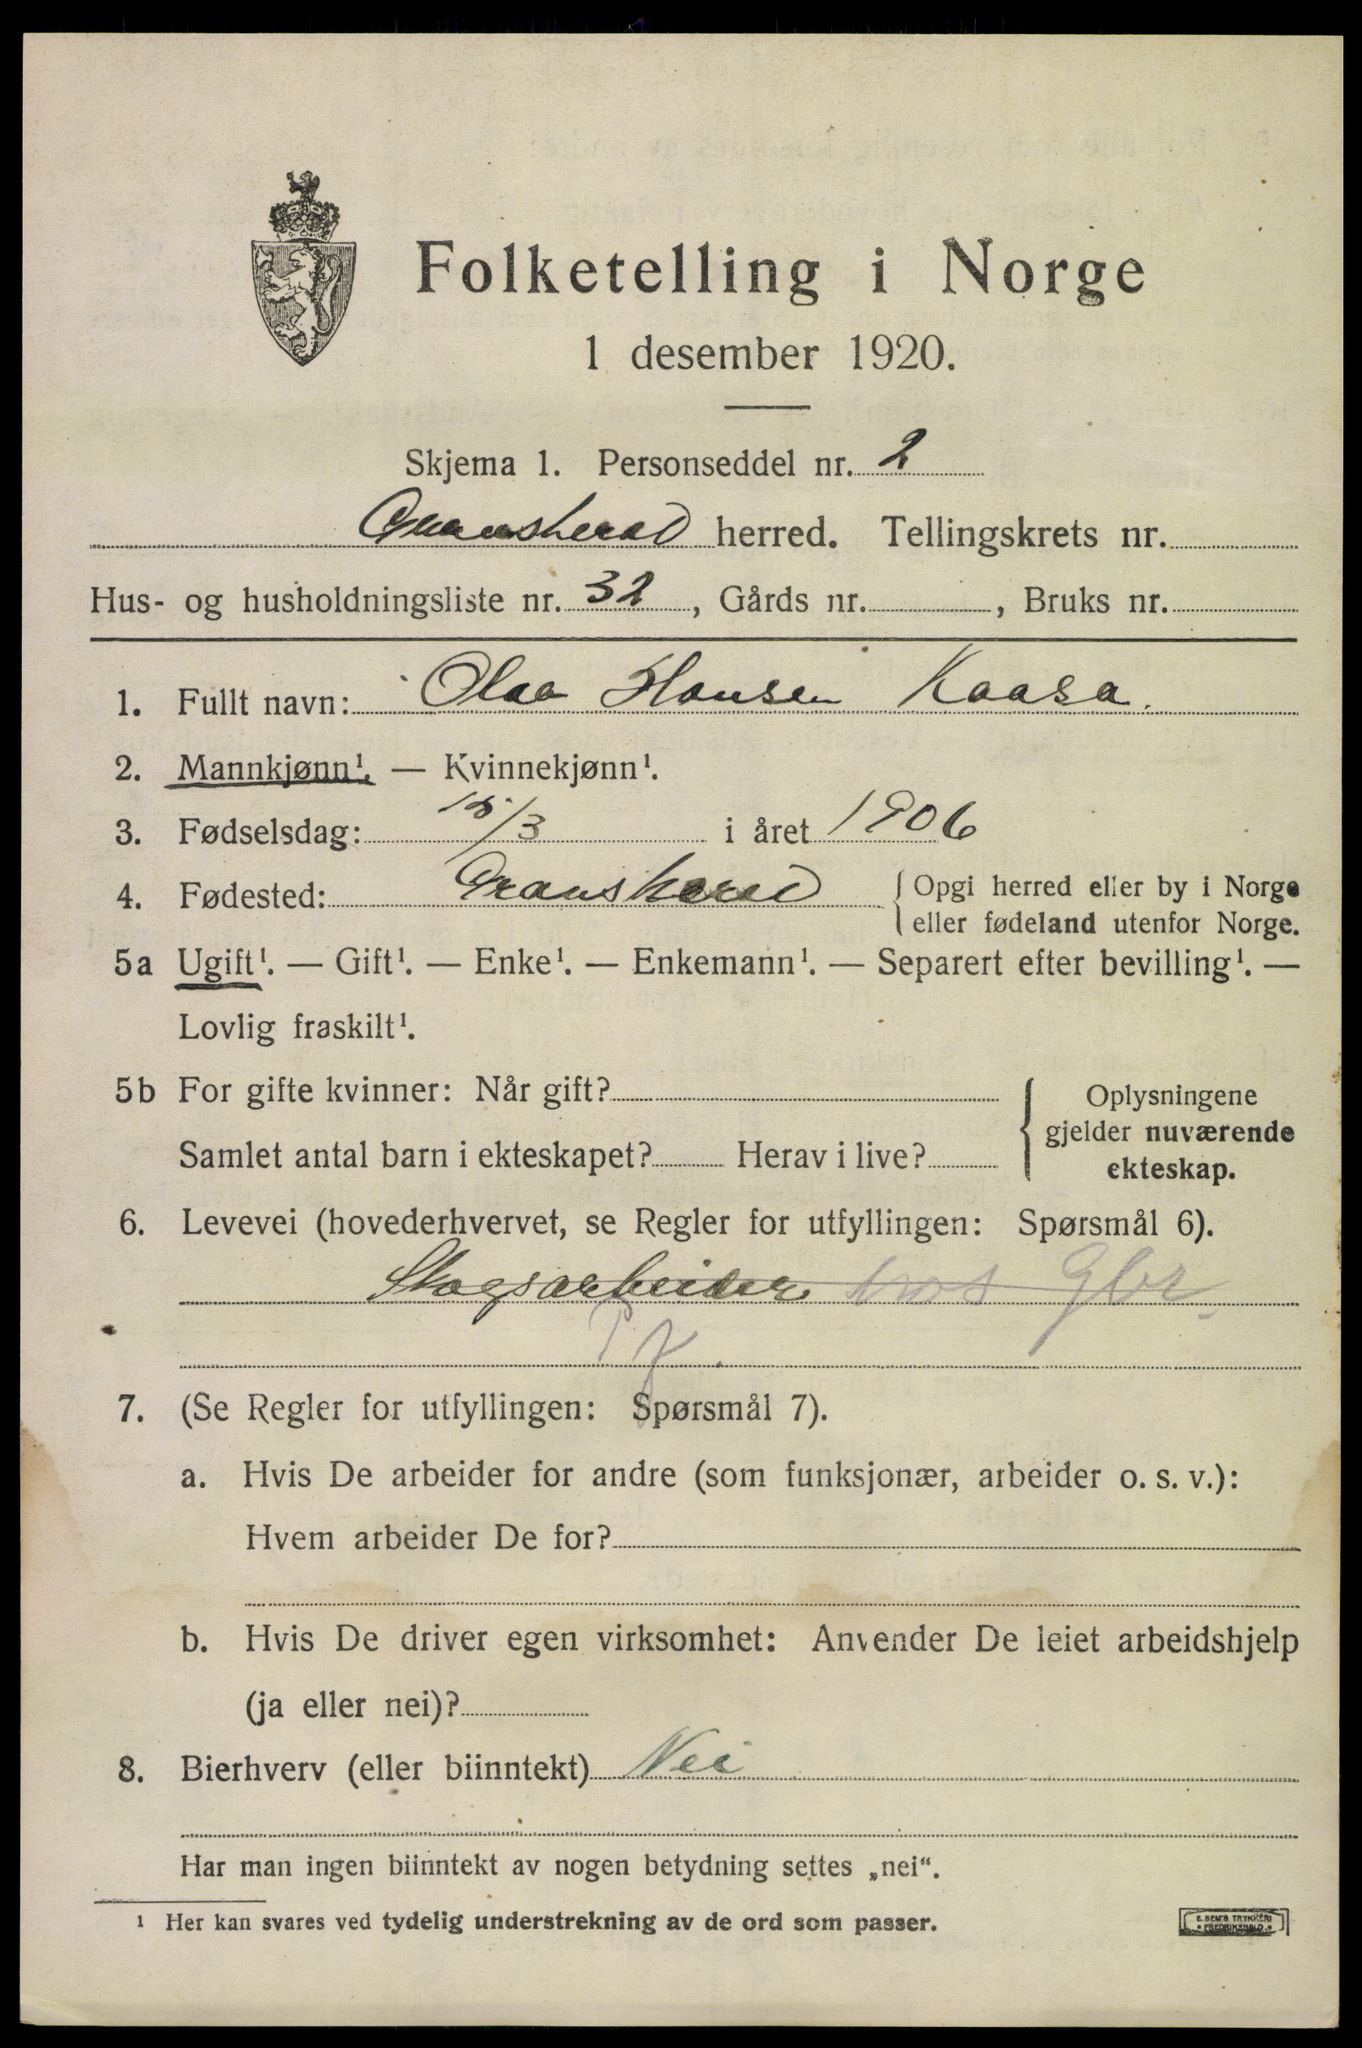 Folketelling i Norge
1 desember 1920.
Skjema 1. Personseddel nr. 2
Gransherad herred. Tellingskrets nr.
Hus- og husholdningsliste nr. 32, Gårds nr. , Bruks nr.
1. Fullt navn: Olav Hansen Kaasa.
2. Mannkjønn¹. — Kvinnekjønn¹.
3. Fødselsdag: 15/3 i året 1906
4. Fødested: Gransherad { Opgi herred eller by i Norge
eller fødeland utenfor Norge.
5a Ugift¹. — Gift¹. — Enke¹. — Enkemann¹. — Separert efter bevilling¹. —
Lovlig fraskilt¹.
5b For gifte kvinner: Når gift?
Samlet antal barn i ekteskapet? Herav i live?
{ Oplysningene
gjelder nuværende
ekteskap.
6. Levevei (hovederhvervet, se Regler for utfyllingen: Spørsmål 6).
Skogsarbeider hos Gbr.
7. (Se Regler for utfyllingen: Spørsmål 7).
a. Hvis De arbeider for andre (som funksjonær, arbeider o. s. v.):
Hvem arbeider De for?
b. Hvis De driver egen virksomhet: Anvender De leiet arbeidshjelp
(ja eller nei)?
8. Bierhverv (eller biinntekt) Nei
Har man ingen biinntekt av nogen betydning settes „nei“.
¹ Her kan svares ved tydelig understrekning av de ord som passer.
E. SEM'S TRYKKERI
* FREDRIKSHALD *